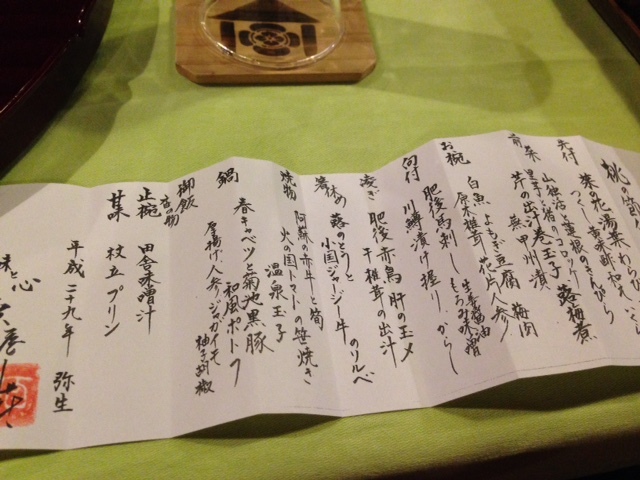 先付
菜花 湯葉 わさび
つくし 東寺和え
山独活と薹根のきんぴら
前菜
里芋と蕗のコロッケ 蕗梅煮
芹の出汁巻玉子
蕪甲州漬 梅肉
お椀
白魚 よもぎ豆腐
原木椎茸 花片人参
向付
肥後馬刺し 生姜醤油 もろみ味噌
川鱒漬け握り からし
凌ぎ
肥後赤鳥 肝の玉〆
干椎茸の出汁
箸休め
蕗のとうと
小国ジャージー牛のソルベ
焼物
阿蘇の赤牛と筍
火の国トマトの笹焼き
温泉玉子
鍋
春キャベツと菊池黒豚
和風ポトフ
厚揚げ、人参、ジャガイモ 柚子胡椒
御飯
香物
止椀 田舎味噌汁
甘味 杖立プリン
平成二十九年 弥生